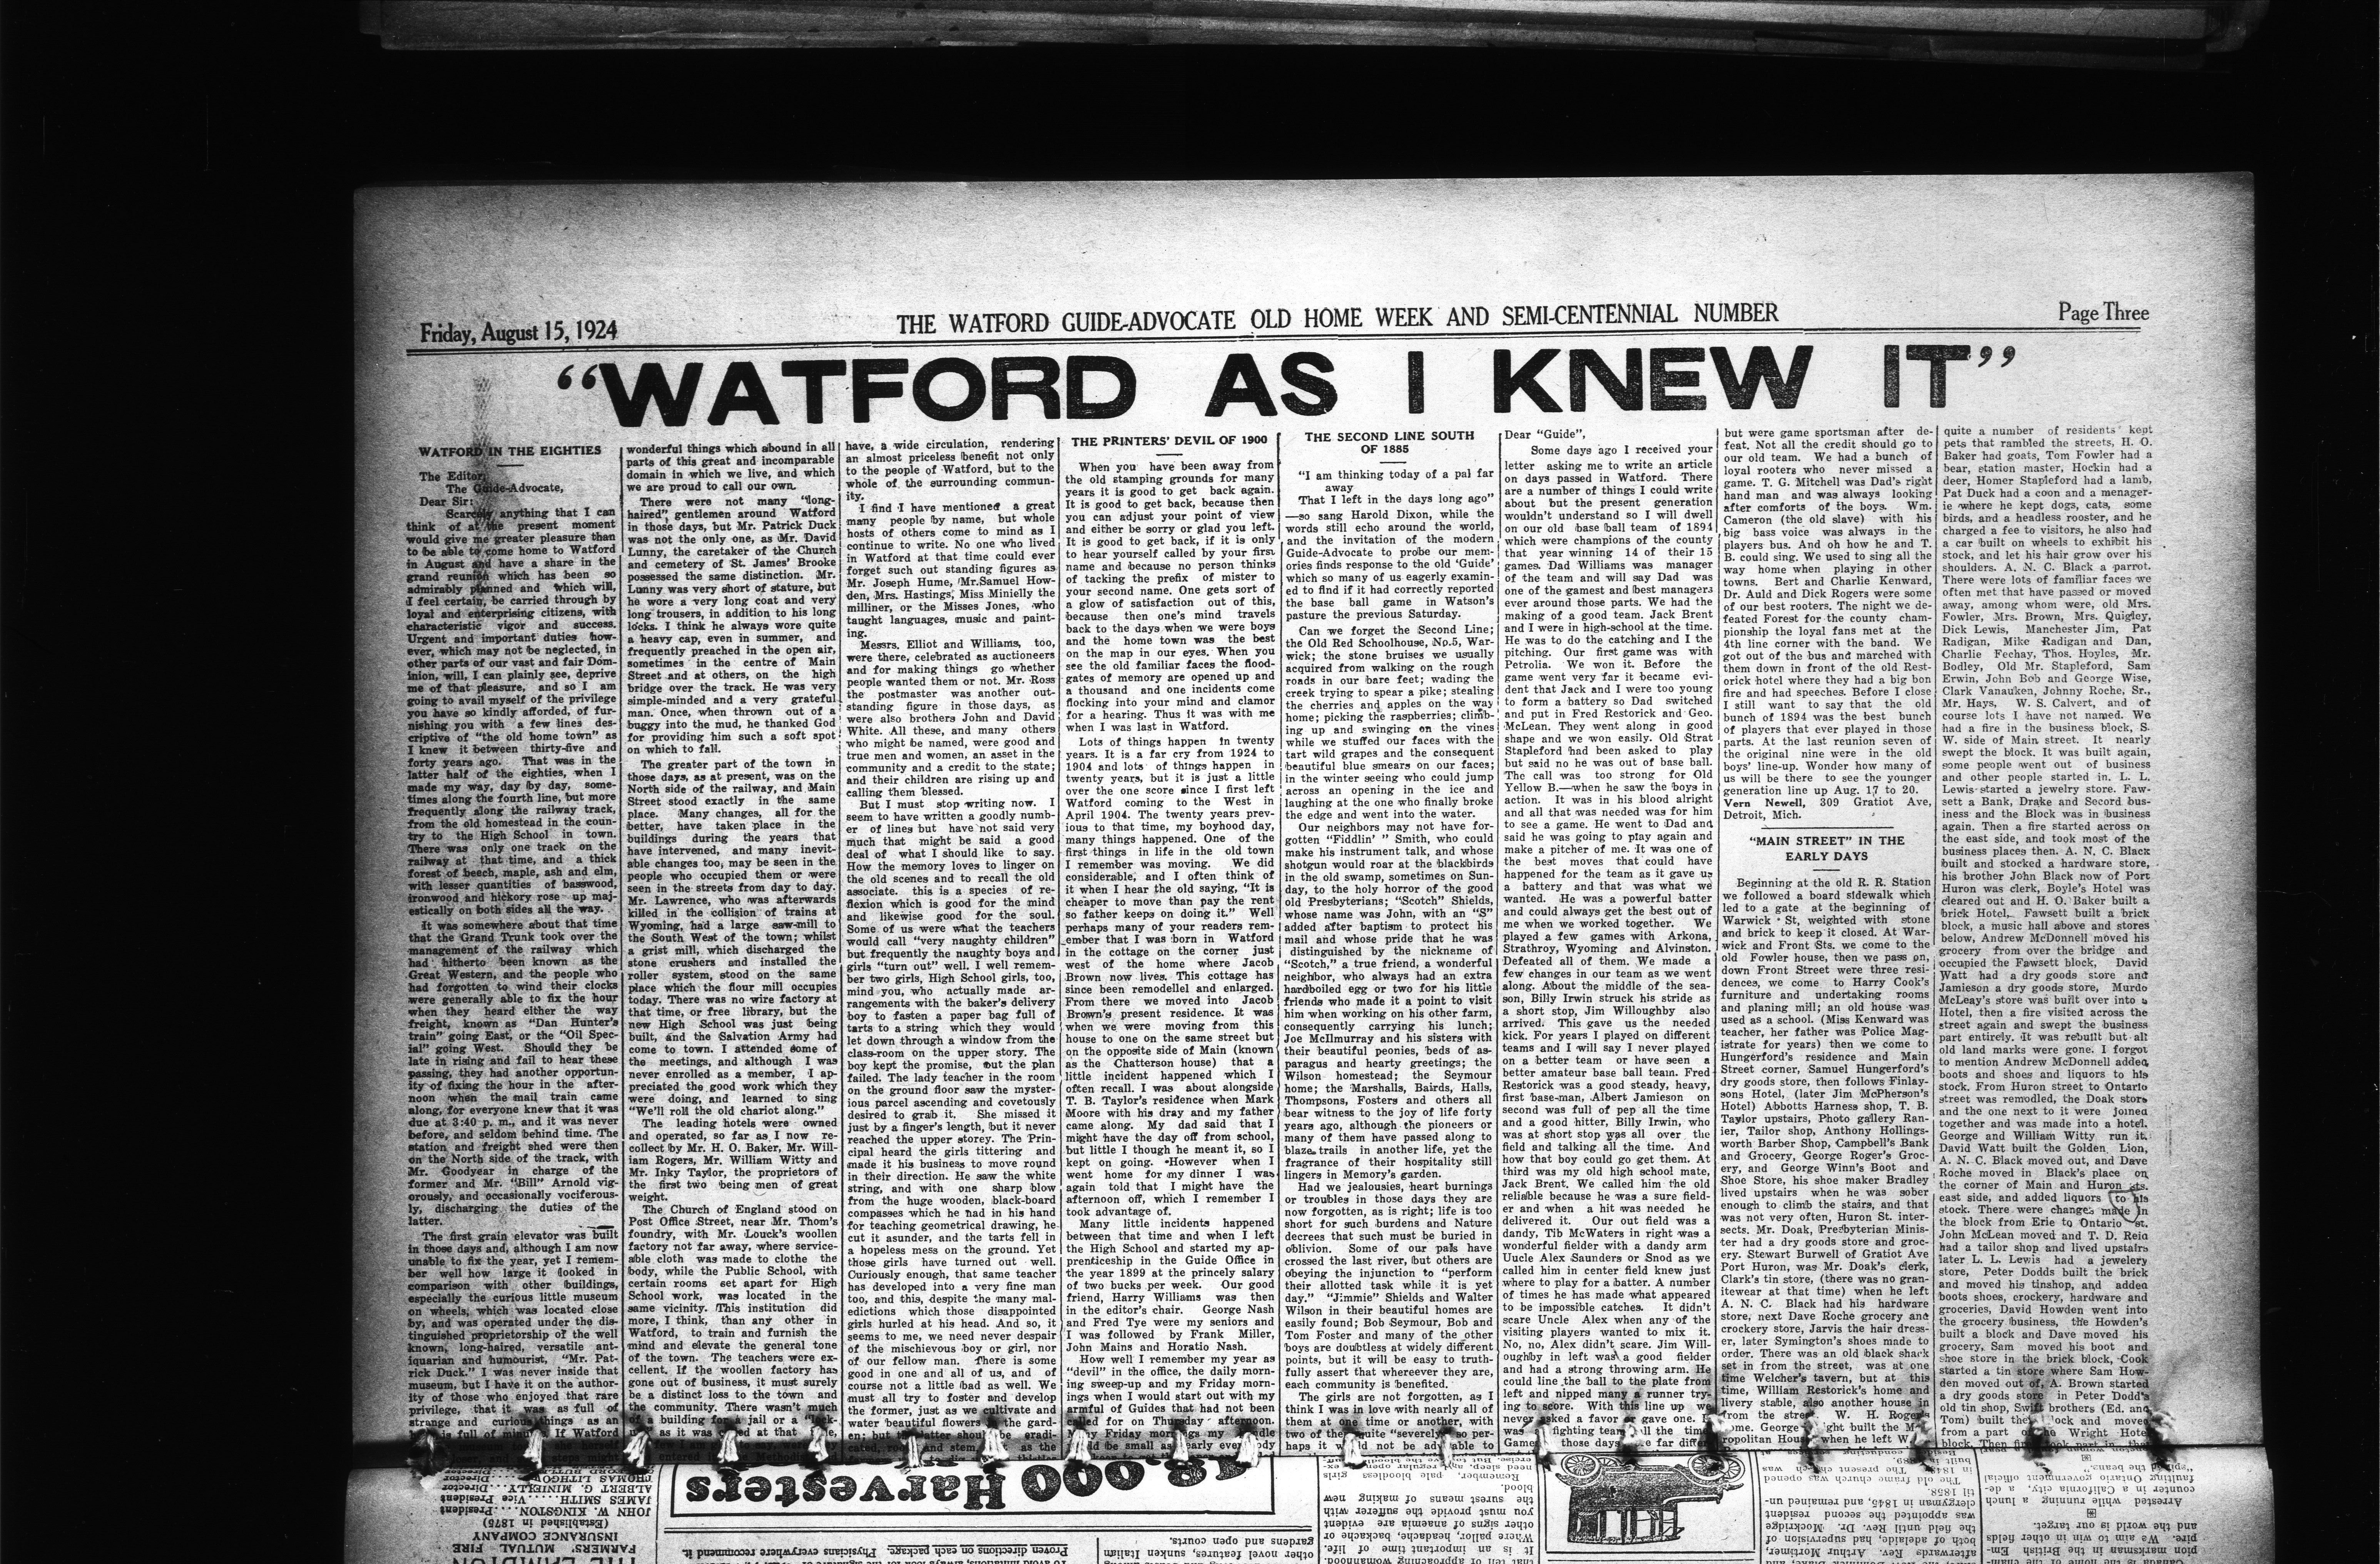 Friday, August 15, 1924
THE WATFORD GUIDE-ADVOCATE OLD HOME WEEK AND SEMI-CENTENNIAL NUMBER
Page Three
“WATFORD AS I KNEW IT”
WATFORD IN THE EIGHTIES
The Editor,
The Guide-Advocate,
Dear Sir:
Scarcely anything that I can
think of at the present moment
would give me greater pleasure than
to be able to come home to Watford
in August and have a share in the
grand reunion which has been so
admirably planned and which will,
I feel certain, be carried through by
loyal and enterprising citizens, with
characteristic vigor and success.
Urgent and important duties how-
ever, which may not be neglected, in
other parts of our vast and fair Dom-
inion, will, I can plainly see, deprive
me of that pleasure, and so I am
going to avail myself of the privilege
you have so kindly afforded, of fur-
nishing you with a few lines des-
criptive of "the old home town" as
I knew it between thirty-five and
forty years ago. That was in the
latter half of the eighties, when I
made my way, day by day, some-
times along the fourth line, but more
frequently along the railway track,
from the old homestead in the coun-
try to the High School in town.
There was only one track on the
railway at that time, and a thick
forest of beech, maple, ash and elm,
with lesser quantities of basswood,
ironwood and hickory rose up maj-
estically on both sides all the way.
It was somewhere about that time
that the Grand Trunk took over the
management of the railway which
had hitherto been known as the
Great Western, and the people who
had forgotten to wind their clocks
were generally able to fix the hour
when they heard either the way
freight, known as "Dan Hunter's
train" going East, or the "Oil Spec-
ial" going West. Should they be
late in rising and fail to hear these
passing, they had another opportun-
ity of fixing the hour in the after-
noon when the mail train came
along, for everyone knew that it was
due at 3:40 p. m., and it was never
before, and seldom behind time. The
station and freight shed were then
on the North side of the track, with
Mr. Goodyear in charge of the
former and Mr. "Bill" Arnold vig-
orously, and occasionally vociferous-
ly, discharging the duties of the
latter.
The first grain elevator was built
in those days and, although I am now
unable to fix the year, yet I remem-
ber well how large it looked in
comparison with other buildings,
especially the curious little museum
on wheels, which was located close
by, and was operated under the dis-
tinguished proprietorship of the well
known, long-haired, versatile ant-
iquarian and humourist, "Mr. Pat-
rick Duck." I was never inside that
museum, but I have it on the author-
ity of those who enjoyed that rare
privilege, that it was as full of
strange and curious things as an
is full of minutes. If Watford
wonderful things which abound in all
parts of this great and incomparable
domain in which we live, and which
we are proud to call our own.
There were not many "long-
haired", gentlemen around Watford
in those days, but Mr. Patrick Duck
was not the only one, as Mr. David
Lunny, the caretaker of the Church
and cemetery of St. James' Brooke
possessed the same distinction. Mr.
Lunny was very short of stature, but
he wore a very long coat and very
long trousers, in addition to his long
locks. I think he always wore quite
a heavy cap, even in summer, and
frequently preached in the open air,
sometimes in the centre of Main
Street and at others, on the high
bridge over the track. He was very
simple-minded and a very grateful
man. Once, when thrown out of a
buggy into the mud, he thanked God
for providing him such a soft spot
on which to fall.
The greater part of the town in
those days, as at present, was on the
North side of the railway, and Main
Street stood exactly in the same
place. Many changes, all for the
better, have taken place in the
buildings during the years that
have intervened, and many inevit-
able changes too, may be seen in the
people who occupied them or were
seen in the streets from day to day.
Mr. Lawrence, who was afterwards
killed in the collision of trains at
Wyoming, had a large saw-mill to
the South West of the town; whilst
a grist mill, which discharged the
stone crushers and installed the
roller system, stood on the same
place which the flour mill occupies
today. There was no wire factory at
that time, or free library, but the
new High School was just being
built, and the Salvation Army had
come to town. I attended some of
the meetings, and although I was
never enrolled as a member, I ap-
preciated the good work which they
were doing, and learned to sing
"We'll roll the old chariot along."
The leading hotels were owned
and operated, so far as I now re-
collect by Mr. H. O. Baker, Mr. Will-
iam Rogers, Mr. William Witty and
Mr. Inky Taylor, the proprietors of
the first two being men of great
weight.
The Church of England stood on
Post Office Street, near Mr. Thom's
foundry, with Mr. Louck's woollen
factory not far away, where service-
able cloth was made to clothe the
body, while the Public School, with
certain rooms set apart for High
School work, was located in the
same vicinity. This institution did
more, I think, than any other in
Watford, to train and furnish the
mind and elevate the general tone
of the town. The teachers were ex-
cellent. If the woollen factory has
gone out of business, it must surely
be a distinct loss to the town and
the community. There wasn't much
of a building for a jail or a "lock-
as it was at that
have, a wide circulation, rendering
an almost priceless benefit not only
to the people of Watford, but to the
whole of the surrounding commun-
ity.
I find I have mentioned a great
many people by name, but whole
hosts of others come to mind as I
continue to write. No one who lived
in Watford at that time could ever
forget such out standing figures as
Mr. Joseph Hume, Mr.Samuel How-
den, Mrs. Hastings, Miss Minielly the
milliner, or the Misses Jones, who
taught languages, music and paint-
ing.
Messrs. Elliot and Williams, too,
were there, celebrated as auctioneers
and for making things go whether
people wanted them or not. Mr. Ross
the postmaster was another out-
standing figure in those days, as
were also brothers John and David
White. All these, and many others
who might be named, were good and
true men and women, an asset in the
community and a credit to the state;
and their children are rising up and
calling them blessed.
But I must stop writing now. I
seem to have written a goodly numb-
er of lines but have not said very
much that might be said a good
deal of what I should like to say.
How the memory loves to linger on
the old scenes and to recall the old
associate. this is a species of re-
flexion which is good for the mind
and likewise good for the soul.
Some of us were what the teachers
would call "very naughty children"
but frequently the naughty boys and
girls "turn out" well. I well remem-
ber two girls, High School girls, too,
mind you, who actually made ar-
rangements with the baker's delivery
boy to fasten a paper bag full of
tarts to a string which they would
let down through a window from the
class-room on the upper story. The
boy kept the promise, but the plan
failed. The lady teacher in the room
on the ground floor saw the myster-
ious parcel ascending and covetously
desired to grab it. She missed it
just by a finger's length, but it never
reached the upper storey. The Prin-
cipal heard the girls tittering and
made it his business to move round
in their direction. He saw the white
string, and with one sharp blow
from the huge wooden, black-board
compasses which he had in his hand
for teaching geometrical drawing, he
cut it asunder, and the tarts fell in
a hopeless mess on the ground. Yet
those girls have turned out well.
Curiously enough, that same teacher
has developed into a very fine man
too, and this, despite the many mal-
edictions which those disappointed
girls hurled at his head. And so, it
seems to me, we need never despair
of the mischievous boy or girl, nor
of our fellow man. There is some
good in one and all of us, and of
course not a little bad as well. We
must all try to foster and develop
the former, just as we cultivate and
water beautiful flowers the gard-
en; but latter should be eradi-
cated, root and stem, as the
THE PRINTERS' DEVIL OF 1900
When you have been away from
the old stamping grounds for many
years it is good to get back again.
It is good to get back, because then
you can adjust your point of view
and either be sorry or glad you left.
It is good to get back, if it is only
to hear yourself called by your first
name and because no person thinks
of tacking the prefix of mister to
your second name. One gets sort of
a glow of satisfaction out of this,
because then one's mind travels
back to the days when we were boys
and the home town was the best
on the map in our eyes. When you
see the old familiar faces the flood-
gates of memory are opened up and
a thousand and one incidents come
flocking into your mind and clamor
for a hearing. Thus it was with me
when I was last in Watford.
Lots of things happen in twenty
years. It is a far cry from 1924 to
1904 and lots of things happen in
twenty years, but it is just a little
over the one score since I first left
Watford coming to the West in
April 1904. The twenty years prev-
ious to that time, my boyhood day,
many things happened. One of the
first things in life in the old town
I remember was moving. We did
considerable, and I often think of
it when I hear the old saying, "It is
cheaper to move than pay the rent
so father keeps on doing it." Well
perhaps many of your readers rem-
ember that I was born in Watford
in the cottage on the corner just
west of the home where Jacob
Brown now lives. This cottage has
since been remodellel and enlarged.
From there we moved into Jacob
Brown's present residence. It was
when we were moving from this
house to one on the same street but
on the opposite side of Main (known
as the Chatterson house) that a
little incident happened which I
often recall. I was about alongside
T. B. Taylor's residence when Mark
Moore with his dray and my father
came along. My dad said that I
might have the day off from school,
but little I though he meant it, so I
kept on going. However when I
went home for my dinner I was
again told that I might have the
afternoon off, which I remember I
took advantage of.
Many little incidents happened
between that time and when I left
the High School and started my ap-
prenticeship in the Guide Office in
the year 1899 at the princely salary
of two bucks per week. Our good
friend, Harry Williams was then
in the editor's chair. George Nash
and Fred Tye were my seniors and
I was followed by Frank Miller,
John Mains and Horatio Nash.
How well I remember my year as
"devil" in the office, the daily morn-
ing sweep-up and my Friday morn-
ings when I would start out with my
armful of Guides that had not been
called for on Thursday afternoon.
Many Friday mornings my
be small as nearly everybody
THE SECOND LINE SOUTH
OF 1885
"I am thinking today of a pal far
away
That I left in the days long ago"
—so sang Harold Dixon, while the
words still echo around the world,
and the invitation of the modern
Guide-Advocate to probe our mem-
ories finds response to the old 'Guide'
which so many of us eagerly examin-
ed to find if it had correctly reported
the base ball game in Watson's
pasture the previous Saturday.
Can we forget the Second Line;
the Old Red Schoolhouse, No.5, War-
wick; the stone bruises we usually
acquired from walking on the rough
roads in our bare feet; wading the
creek trying to spear a pike; stealing
the cherries and apples on the way
home; picking the raspberries; climb-
ing up and swinging on the vines
while we stuffed our faces with the
tart wild grapes and the consequent
beautiful blue smears on our faces;
in the winter seeing who could jump
across an opening in the ice and
laughing at the one who finally broke
the edge and went into the water.
Our neighbors may not have for-
gotten "Fiddlin' " Smith, who could
make his instrument talk, and whose
shotgun would roar at the blackbirds
in the old swamp, sometimes on Sun-
day, to the holy horror of the good
old Presbyterians; "Scotch" Shields,
whose name was John, with an "S"
added after baptism to protect his
mail and whose pride that he was
distinguished by the nickname of
"Scotch," a true friend, a wonderful
neighbor, who always had an extra
hardboiled egg or two for his little
friends who made it a point to visit
him when working on his other farm,
consequently carrying his lunch;
Joe McIlmurray and his sisters with
their beautiful peonies, beds of as-
paragus and hearty greetings; the
Wilson homestead; the Seymour
home; the Marshalls, Bairds, Halls,
Thompsons, Fosters and others all
bear witness to the joy of life forty
years ago, although the pioneers or
many of them have passed along to
blaze trails in another life, yet the
fragrance of their hospitality still
lingers in Memory's garden.
Had we jealousies, heart burnings
or troubles in those days they are
now forgotten, as is right; life is too
short for such burdens and Nature
decrees that such must be buried in
oblivion. Some of our pals have
crossed the last river, but others are
obeying the injunction to "perform
their allotted task while it is yet
day." "Jimmie" Shields and Walter
Wilson in their beautiful homes are
easily found; Bob Seymour, Bob and
Tom Foster and many of the other
boys are doubtless at widely different
points, but it will be easy to truth-
fully assert that whereever they are,
each community is benefited.
The girls are not forgotten, as I
think I was in love with nearly all of
them at one time or another, with
two of the quite "severely" so per-
haps it would not be advisable to
Dear "Guide",
Some days ago I received your
letter asking me to write an article
on days passed in Watford. There
are a number of things I could write
about but the present generation
wouldn't understand so I will dwell
on our old base ball team of 1894
which were champions of the county
that year winning 14 of their 15
games. Dad Williams was manager
of the team and will say Dad was
one of the gamest and best managers
ever around those parts. We had the
making of a good team. Jack Brent
and I were in high-school at the time.
He was to do the catching and I the
pitching. Our first game was with
Petrolia. We won it. Before the
game went very far it became evi-
dent that Jack and I were too young
to form a battery so Dad switched
and put in Fred Restorick and Geo.
McLean. They went along in good
shape and we won easily. Old Strat
Stapleford had been asked to play
but said no he was out of base ball.
The call was too strong for Old
Yellow B.—when he saw the boys in
action. It was in his blood alright
and all that was needed was for him
to see a game. He went to Dad and
said he was going to play again and
make a pitcher of me. It was one of
the best moves that could have
happened for the team as it gave us
a battery and that was what we
wanted. He was a powerful batter
and could always get the best out of
me when we worked together. We
played a few games with Arkona,
Strathroy, Wyoming and Alvinston.
Defeated all of them. We made a
few changes in our team as we went
along. About the middle of the sea-
son, Billy Irwin struck his stride as
a short stop, Jim Willoughby also
arrived. This gave us the needed
kick. For years I played on different
teams and I will say I never played
on a better team or have seen a
better amateur base ball team. Fred
Restorick was a good steady, heavy,
first base-man, Albert Jamieson on
second was full of pep all the time
and a good hitter, Billy Irwin, who
was at short stop was all over the
field and talking all the time. And
how that boy could go get them. At
third was my old high school mate,
Jack Brent. We called him the old
reliable because he was a sure field-
er and when a hit was needed he
delivered it. Our out field was a
dandy, Tib McWaters in right was a
wonderful fielder with a dandy arm
Uucle Alex Saunders or Snod as we
called him in center field knew just
where to play for a batter. A number
of times he has made what appeared
to be impossible catches. It didn't
scare Uncle Alex when any of the
visiting players wanted to mix it.
No, no, Alex didn't scare. Jim Will-
oughby in left was a good fielder
and had a strong throwing arm. He
could line the ball to the plate from
left and nipped many a runner try-
ing to score. With this line up we
never asked a favor or gave one. It
was fighting team all the time
Games those days are far differ
but were game sportsman after de-
feat. Not all the credit should go to
our old team. We had a bunch of
loyal rooters who never missed a
game. T. G. Mitchell was Dad's right
hand man and was always looking
after comforts of the boys. Wm.
Cameron (the old slave) with his
big bass voice was always in the
players bus. And oh how he and T.
B. could sing. We used to sing all the
way home when playing in other
towns. Bert and Charlie Kenward,
Dr. Auld and Dick Rogers were some
of our best rooters. The night we de-
feated Forest for the county cham-
pionship the loyal fans met at the
4th line corner with the band. We
got out of the bus and marched with
them down in front of the old Rest-
orick hotel where they had a big bon
fire and had speeches. Before I close
I still want to say that the old
bunch of 1894 was the best bunch
of players that ever played in those
parts. At the last reunion seven of
the original nine were in the old
boys' line-up. Wonder how many of
us will be there to see the younger
generation line up Aug. 17 to 20.
Vern Newell, 309 Gratiot Ave,
Detroit, Mich.
"MAIN STREET" IN THE
EARLY DAYS
Beginning at the old R. R. Station
we followed a board sidewalk which
led to a gate at the beginning of
Warwick St, weighted with stone
and brick to keep it closed. At War-
wick and Front Sts. we come to the
old Fowler house, then we pass on,
down Front Street were three resi-
dences, we come to Harry Cook's
furniture and undertaking rooms
and planing mill; an old house was
used as a school. (Miss Kenward was
teacher, her father was Police Mag-
istrate for years) then we come to
Hungerford's residence and Main
Street corner, Samuel Hungerford's
dry goods store, then follows Finlay-
sons Hotel, (later Jim McPherson's
Hotel) Abbotts Harness shop, T. B.
Taylor upstairs, Photo gallery Ran-
ier, Tailor shop, Anthony Hollings-
worth Barber Shop, Campbell's Bank
and Grocery, George Roger's Groc-
ery, and George Winn's Boot and
Shoe Store, his shoe maker Bradley
lived upstairs when he was sober
enough to climb the stairs, and that
was not very often, Huron St. inter-
sects. Mr. Doak, Presbyterian Minis-
ter had a dry goods store and groc-
ery. Stewart Burwell of Gratiot Ave
Port Huron, was Mr. Doak's clerk,
Clark's tin store, (there was no gran-
itewear at that time) when he left
A. N. C. Black had his hardware
store, next Dave Roche grocery and
crockery store, Jarvis the hair dress-
er, later Symington's shoes made to
order. There was an old black shack
set in from the street, was at one
time Welcher's tavern, but at this
time, William Restorick's home and
livery stable, also another house in
from the street W. H. Roger's
ome. George ight built the M
opolitan Hous when he left W
quite a number of residents kept
pets that rambled the streets, H. O.
Baker had goats, Tom Fowler had a
bear, station master, Hockin had a
deer, Homer Stapleford had a lamb,
Pat Duck had a coon and a menager-
ie where he kept dogs, cats, some
birds, and a headless rooster, and he
charged a fee to visitors, he also had
a car built on wheels to exhibit his
stock, and let his hair grow over his
shoulders. A. N. C. Black a parrot.
There were lots of familiar faces we
often met that have passed or moved
away, among whom were, old Mrs.
Fowler, Mrs. Brown, Mrs. Quigley,
Dick Lewis, Manchester Jim, Pat
Radigan, Mike Radigan and Dan,
Charlie Fechay, Thos. Hoyles, Mr.
Bodley, Old Mr. Stapleford, Sam
Erwin, John Bob and George Wise,
Clark Vanauken, Johnny Roche, Sr.,
Mr. Hays, W. S. Calvert, and of
course lots I have not named. We
had a fire in the business block, S.
W. side of Main street. It nearly
swept the block. It was built again,
some people went out of business
and other people started in. L. L.
Lewis started a jewelry store. Faw-
sett a Bank, Drake and Secord bus-
iness and the Block was in business
again. Then a fire started across on
the east side, and took most of the
business places then. A. N. C. Black
built and stocked a hardware store,
his brother John Black now of Port
Huron was clerk, Boyle's Hotel was
cleared out and H. O. Baker built a
brick Hotel, Fawsett built a brick
block, a music hall above and stores
below, Andrew McDonnell moved his
grocery from over the bridge and
occupied the Fawsett block, David
Watt had a dry goods store and
Jamieson a dry goods store, Murdo
McLeay's store was built over into a
Hotel, then a fire visited across the
street again and swept the business
part entirely. It was rebuilt but all
old land marks were gone. I forgot
to mention Andrew McDonnell added
boots and shoes and liquors to his
stock. From Huron street to Ontario
street was remodled, the Doak store
and the one next to it were joined
together and was made into a hotel.
George and William Witty run it.
David Watt built the Golden Lion,
A. N. C. Black moved out, and Dave
Roche moved in Black's place on
the corner of Main and Huron sts.
east side, and added liquors to his
stock. There were changes made in
the block from Erie to Ontario st.
John McLean moved and T. D. Reid
had a tailor shop and lived upstairs
later L. L. Lewis had a jewelery
store, Peter Dodds built the brick
and moved his tinshop, and added
boots shoes, crockery, hardware and
groceries, David Howden went into
the grocery business, the Howden's
built a block and Dave moved his
grocery, Sam moved his boot and
shoe store in the brick block, Cook
started a tin store where Sam How-
den moved out of, A. Brown started
a dry goods store in Peter Dodd's
old tin shop, Swift brothers (Ed. and
Tom) built the lock and moved
from a part of the Wright Hotel
block. Then fire took part in that
FARMERS' MUTUAL FIRE
INSURANCE COMPANY
(Established in 1875)
JOHN W. KINGSTON....President
JAMES SMITH.....Vice President
ALBERT G. MINIELLY....Director
THOMAS LITHGOW......Director
000 Harvesters
Proven directions on each package. Physicians everywhere recommend it.
other novel features, sunken Italian
gardens and open courts.
It is an important time of life.
Where pallor, headache, backache or
other signs of anaemia are evident
you must provide the sufferer with
the surest means of making new
blood.
Remember, pale bloodless girls
afterwards Rev. Arthur Mortimer,
both of adelaide, had supervision of
the field until Rev. Dr. Mockridge
was appointed the second resident
clergyman in 1845, and remained un-
til 1858.
The old frame church was opened
and the world is our target.
Arrested while running a lunch
counter in a California city, a de-
faulting Ontario government official
"spilled the beans."